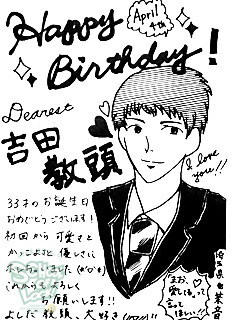 Happy
April
4th
Birthday!
Dearest
吉田
教頭
I love
you!!
33才のお誕生日
おめでとうございます!
初回から可愛さと
かっこよさと優しさに
ホレちゃいました(*°▽°*)
これからもよろしく
お願いします!!
よしだ教頭、大好き
埼玉県
まお、
愛してるって
言って
ほしい!!